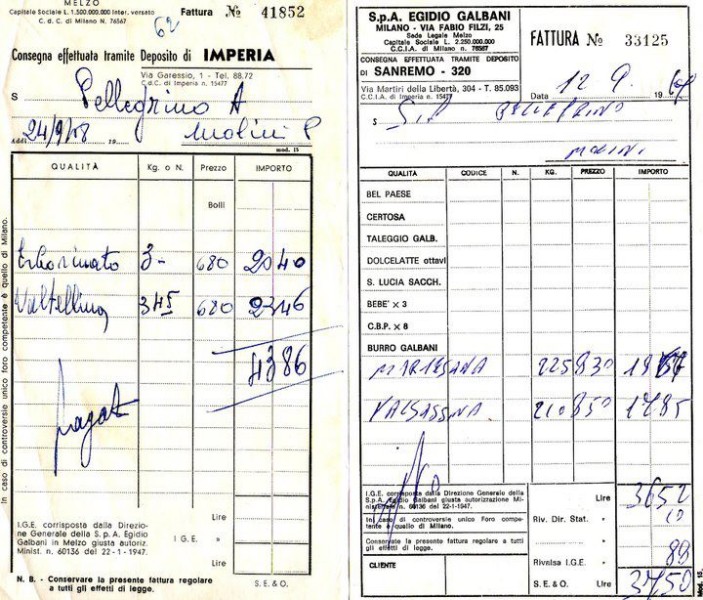 MELZO
Capitale Sociale L. 1.500.000.000 inter. versato
C. d. C. di Milano N. 76567
Fattura № 41852
62
Consegna effettuata tramite Deposito di IMPERIA
Via Garessio, 1 - Tel. 88.72
C.d.C. di Imperia n. 15477
S Pellegrino A
Molini P
Addì 24/9/68 19
mod. 15
QUALITÀ Kg. o N. Prezzo IMPORTO
Bolli
Erborinato 3- 680 2040
Valtellina 345 680 2346
4386
pagat
In caso di controversie unico foro competente è quello di Milano.
I.G.E. corrisposta dalla Direzio-
ne Generale della S.p.A. Egidio
Galbani in Melzo giusta autoriz.
Minist. n. 60136 del 22-1-1947.
Lire
I G E. »
Lire
N. B. - Conservare la presente fattura regolare
a tutti gli effetti di legge.
S. E. & O.
S.p.A. EGIDIO GALBANI
MILANO - VIA FABIO FILZI, 25
Sede Legale Melzo
Capitale Sociale L. 2.250.000.000
C.C.I.A. di Milano n. 76567
FATTURA № 33125
CONSEGNA EFFETTUATA TRAMITE DEPOSITO
DI SANREMO - 320
Via Martiri della Libertà, 304 - T. 85.093
C.C.I.A. di Imperia n. 15477
Data 12 9 19 68
S PELLEGRINO
MOLINI
QUALITÀ CODICE N. KG. PREZZO IMPORTO
BEL PAESE
CERTOSA
TALEGGIO GALB.
DOLCELATTE ottavi
S. LUCIA SACCH.
BEBE' x 3
C.B.P. x 8
BURRO GALBANI
MARTESANA 225 830
VALSASSINA 210 850 1785
I.G.E. corrisposta dalla Direzione Generale della
S.p.A. Egidio Galbani giusta autorizzazione Mi-
nisteriale n. 60136 del 22-1-1947.
In caso di controversie unico Foro compe-
tente è quello di Milano.
Conservate la presente fattura regolare a tutti
gli effetti di legge.
CLIENTE
Lire 3652
Riv. Dir. Stat. » 10
Rivalsa I.G.E. » 88
S. E. & O. Lire 3750
Mod. 15.